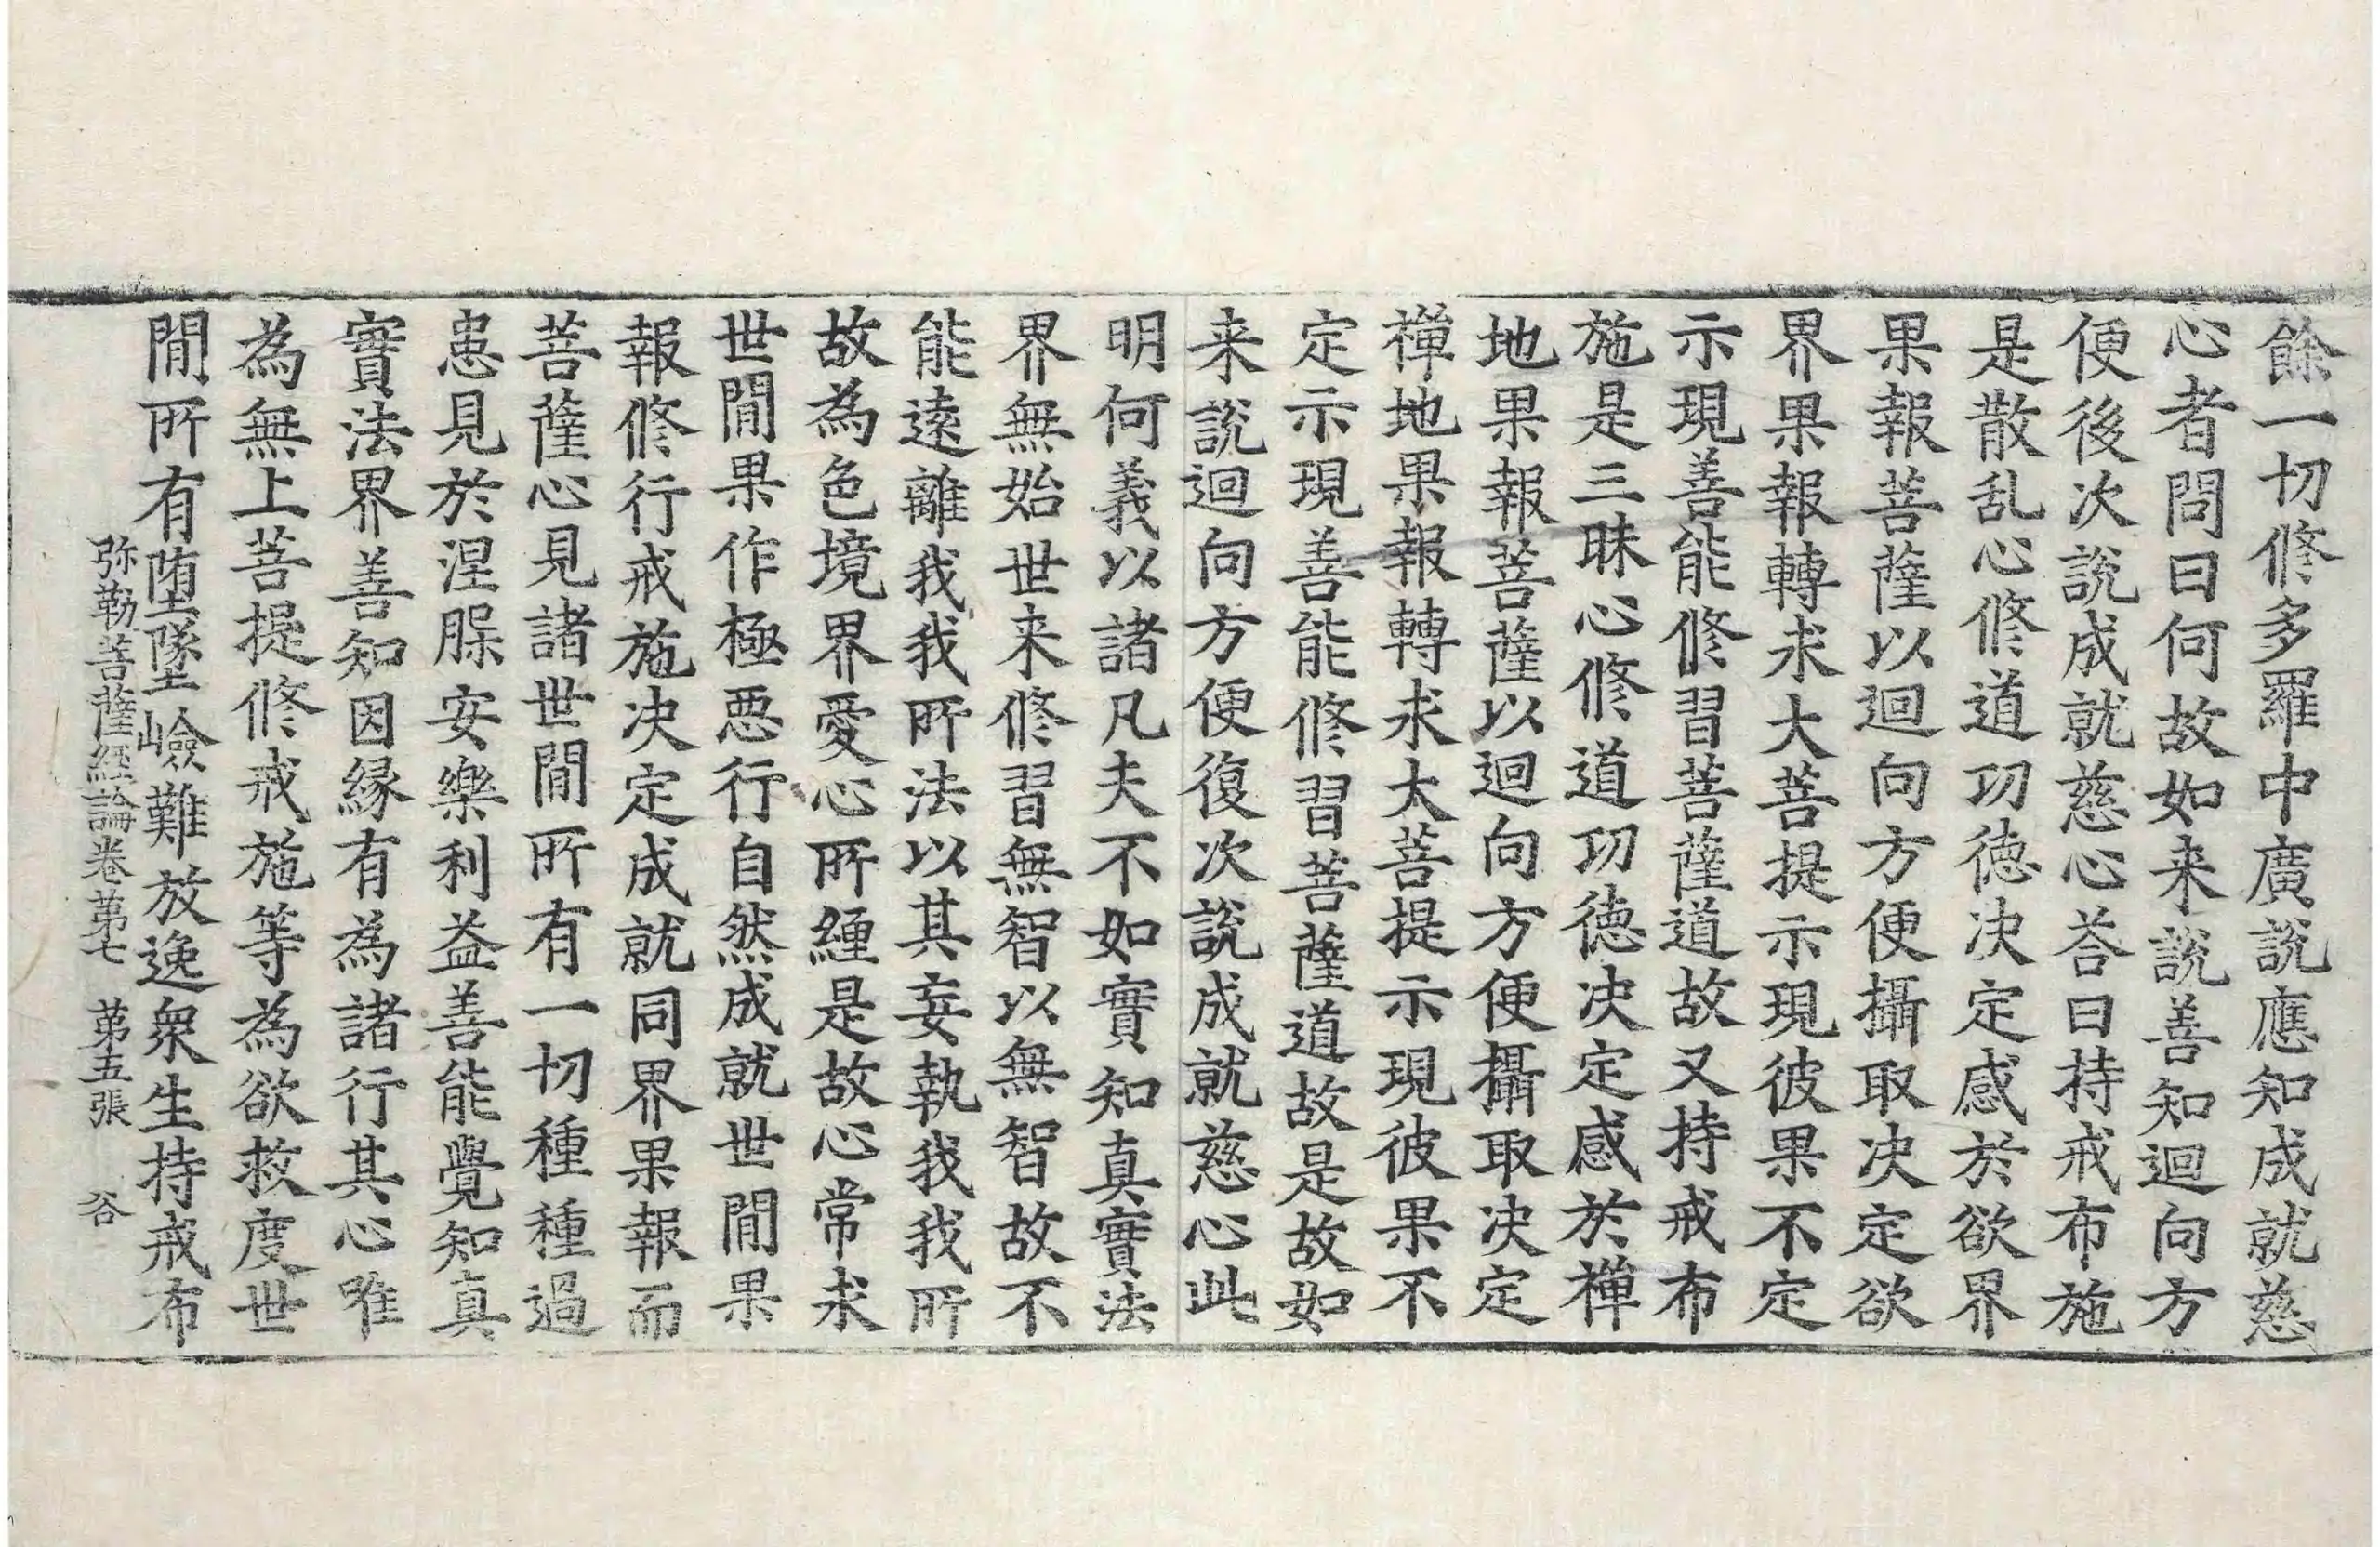 餘一切修多羅中廣說應知成就慈
心者問曰何故如来說善知迴向方
便後次說成就慈心荅曰持戒布施
是散乱心修道功徳决定感於欲界
果報菩薩以迴向方便攝取决定欲
界果報轉求大菩提示現彼果不定
示現善能修習菩薩道故又持戒布
施是三昧心修道功徳决定感於禅
地果報菩薩以迴向方便攝取决定
禅地果報轉求大菩提示現彼果不
定示現善能修習菩薩道故是故如
来說迴向方便復次說成就慈心此
明何義以諸凡夫不如實知真實法
界無始世来修習無智以無智故不
能遠離我我所法以其妄執我我所
故為色境界愛心所纒是故心常求
世間果作極惡行自然成就世間果
報修行戒施决定成就同界果報而
菩薩心見諸世間所有一切種種過
患見於涅槃安樂利益善能覺知真
實法界善知因縁有為諸行其心唯
為無上菩提修戒施等為欲救度世
間所有堕墜嶮難放逸衆生持戒布
弥勒菩薩經論卷苐七　苐五張　谷